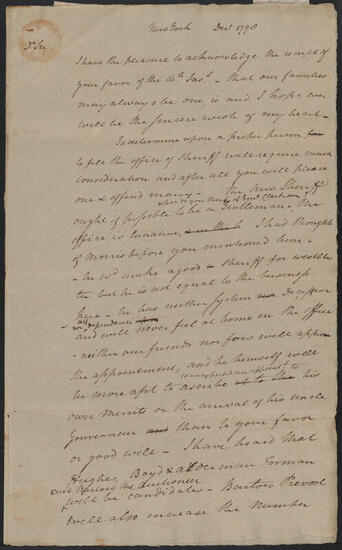 New York Decr 1798
Dr Sir
I have the pleasure to acknowledge the receipt of
your favor of the 14th Inst. - that our families
may always be one, is and I hope ever
will be the sincere wish of my heart -
To determine upon a proper person for
to fill the office of Sheriff will require much
consideration and after all you will please
one & offend many - The New Sheriff
ought if possible to be a Gentleman - the
office is lucrative, I had thought
of Morris before you mentioned him -
- he wd make a good - Sheriff for westches
ter but he is not equal to the business
here - he has neither System nor
and will never feel at home in the office
- neither our friends nor foes will
the appointment, and he himself will
be more apt to ascribe his
own Merits or the arrival of his Uncle
Gouverneur than to your favor
or good will - I have heard that
Hughes, Boyd & alderman Forman
and the Auctioneer
will be candidates - Bartow Prevost
will also increase the Number